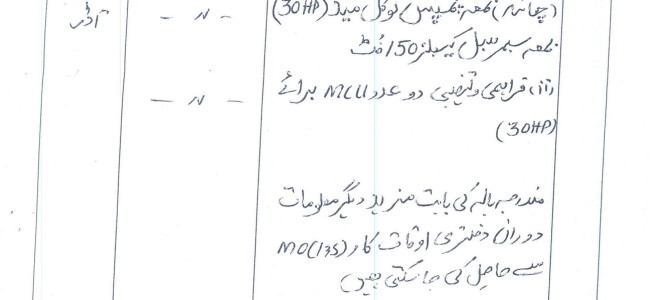 (چائنہ) بمعہ پمپس لوکل میڈ (30HP)
بمعہ سبمرسیبل کیبلز 150 فٹ
-〃-
آڈر
(ii) فراہمی و تنصیبی دو عدد MCU برائے
(30HP)
-〃-
مندرجہ بالہ کی بابت مزید دیگر معلومات
دوران دفتری اوقات کار MO(135)
سے حاصل کی جا سکتی ہیں